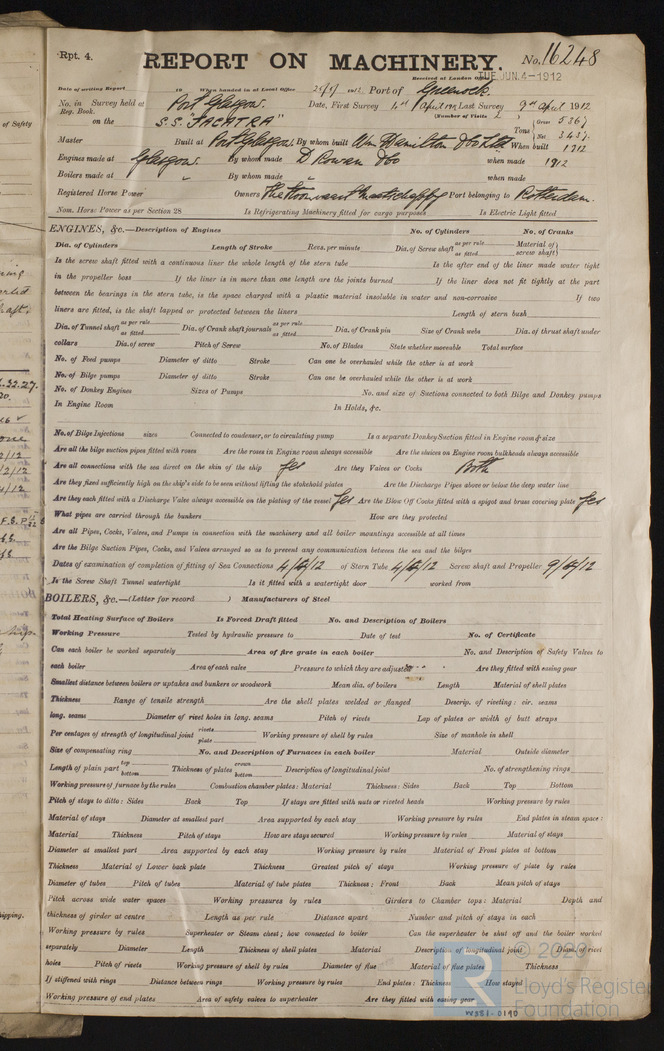 Rpt. 4.
REPORT ON MACHINERY. No. 16248
Received at London Office TUE. JUN. 4-1912
Date of writing Report 19 When handed in at Local Office Port of Greenock
No. in Survey held at Port Glasgow. Date, First Survey 4th April 1912 Last Survey 9th April 1912
Reg. Book. (Number of Visits 2)
on the S.S. "JACATRA" Tons Gross 5367 Net 3437
Master Built at Port Glasgow By whom built Wm Hamilton & Co Ltd When built 1912
Engines made at Glasgow. By whom made D Rowan & Co when made 1912
Boilers made at " By whom made " when made
Registered Horse Power Owners Port belonging to Rotterdam.
Nom. Horse Power as per Section 28 Is Refrigerating Machinery fitted for cargo purposes Is Electric Light fitted
ENGINES, &c.—Description of Engines No. of Cylinders No. of Cranks
Dia. of Cylinders Length of Stroke Revs. per minute Dia. of Screw shaft as per rule as fitted Material of screw shaft
Is the screw shaft fitted with a continuous liner the whole length of the stern tube Is the after end of the liner made water tight
in the propeller boss If the liner is in more than one length are the joints burned If the liner does not fit tightly at the part
between the bearings in the stern tube, is the space charged with a plastic material insoluble in water and non-corrosive If two
liners are fitted, is the shaft lapped or protected between the liners Length of stern bush
Dia. of Tunnel shaft as per rule as fitted Dia. of Crank shaft journals as per rule as fitted Dia. of Crank pin Size of Crank webs Dia. of thrust shaft under
collars Dia. of screw Pitch of Screw No. of Blades State whether moveable Total surface
No. of Feed pumps Diameter of ditto Stroke Can one be overhauled while the other is at work
No. of Bilge pumps Diameter of ditto Stroke Can one be overhauled while the other is at work
No. of Donkey Engines Sizes of Pumps No. and size of Suctions connected to both Bilge and Donkey pumps
In Engine Room In Holds, &c.
No. of Bilge Injections sizes Connected to condenser, or to circulating pump Is a separate Donkey Suction fitted in Engine room & size
Are all the bilge suction pipes fitted with roses Are the roses in Engine room always accessible Are the sluices on Engine room bulkheads always accessible
Are all connections with the sea direct on the skin of the ship Yes Are they Valves or Cocks Both
Are they fixed sufficiently high on the ship's side to be seen without lifting the stokehold plates Are the Discharge Pipes above or below the deep water line
Are they each fitted with a Discharge Valve always accessible on the plating of the vessel Yes Are the Blow Off Cocks fitted with a spigot and brass covering plate Yes
What pipes are carried through the bunkers How are they protected
Are all Pipes, Cocks, Valves, and Pumps in connection with the machinery and all boiler mountings accessible at all times
Are the Bilge Suction Pipes, Cocks, and Valves arranged so as to prevent any communication between the sea and the bilges
Dates of examination of completion of fitting of Sea Connections 4/4/12 of Stern Tube 4/4/12 Screw shaft and Propeller 9/4/12
Is the Screw Shaft Tunnel watertight Is it fitted with a watertight door worked from
BOILERS, &c.—(Letter for record ) Manufacturers of Steel
Total Heating Surface of Boilers Is Forced Draft fitted No. and Description of Boilers
Working Pressure Tested by hydraulic pressure to Date of test No. of Certificate
Can each boiler be worked separately Area of fire grate in each boiler No. and Description of Safety Valves to
each boiler Area of each valve Pressure to which they are adjusted Are they fitted with easing gear
Smallest distance between boilers or uptakes and bunkers or woodwork Mean dia. of boilers Length Material of shell plates
Thickness Range of tensile strength Are the shell plates welded or flanged Descrip. of riveting: cir. seams
long. seams Diameter of rivet holes in long. seams Pitch of rivets Lap of plates or width of butt straps
Per centages of strength of longitudinal joint rivets plate Working pressure of shell by rules Size of manhole in shell
Size of compensating ring No. and Description of Furnaces in each boiler Material Outside diameter
Length of plain part top bottom Thickness of plates crown bottom Description of longitudinal joint No. of strengthening rings
Working pressure of furnace by the rules Combustion chamber plates: Material Thickness: Sides Back Top Bottom
Pitch of stays to ditto: Sides Back Top If stays are fitted with nuts or riveted heads Working pressure by rules
Material of stays Diameter at smallest part Area supported by each stay Working pressure by rules End plates in steam space:
Material Thickness Pitch of stays How are stays secured Working pressure by rules Material of stays
Diameter at smallest part Area supported by each stay Working pressure by rules Material of Front plates at bottom
Thickness Material of Lower back plate Thickness Greatest pitch of stays Working pressure of plate by rules
Diameter of tubes Pitch of tubes Material of tube plates Thickness: Front Back Mean pitch of stays
Pitch across wide water spaces Working pressures by rules Girders to Chamber tops: Material Depth and
thickness of girder at centre Length as per rule Distance apart Number and pitch of stays in each
Working pressure by rules Superheater or Steam chest; how connected to boiler Can the superheater be shut off and the boiler worked
separately Diameter Length Thickness of shell plates Material Description of longitudinal joint Diam. of rivet
holes Pitch of rivets Working pressure of shell by rules Diameter of flue Material of flue plates Thickness
If stiffened with rings Distance between rings Working pressure by rules End plates: Thickness How stayed
Working pressure of end plates Area of safety valves to superheater Are they fitted with easing gear
W581-0190
© 2020
Lloyd's Register
Foundation